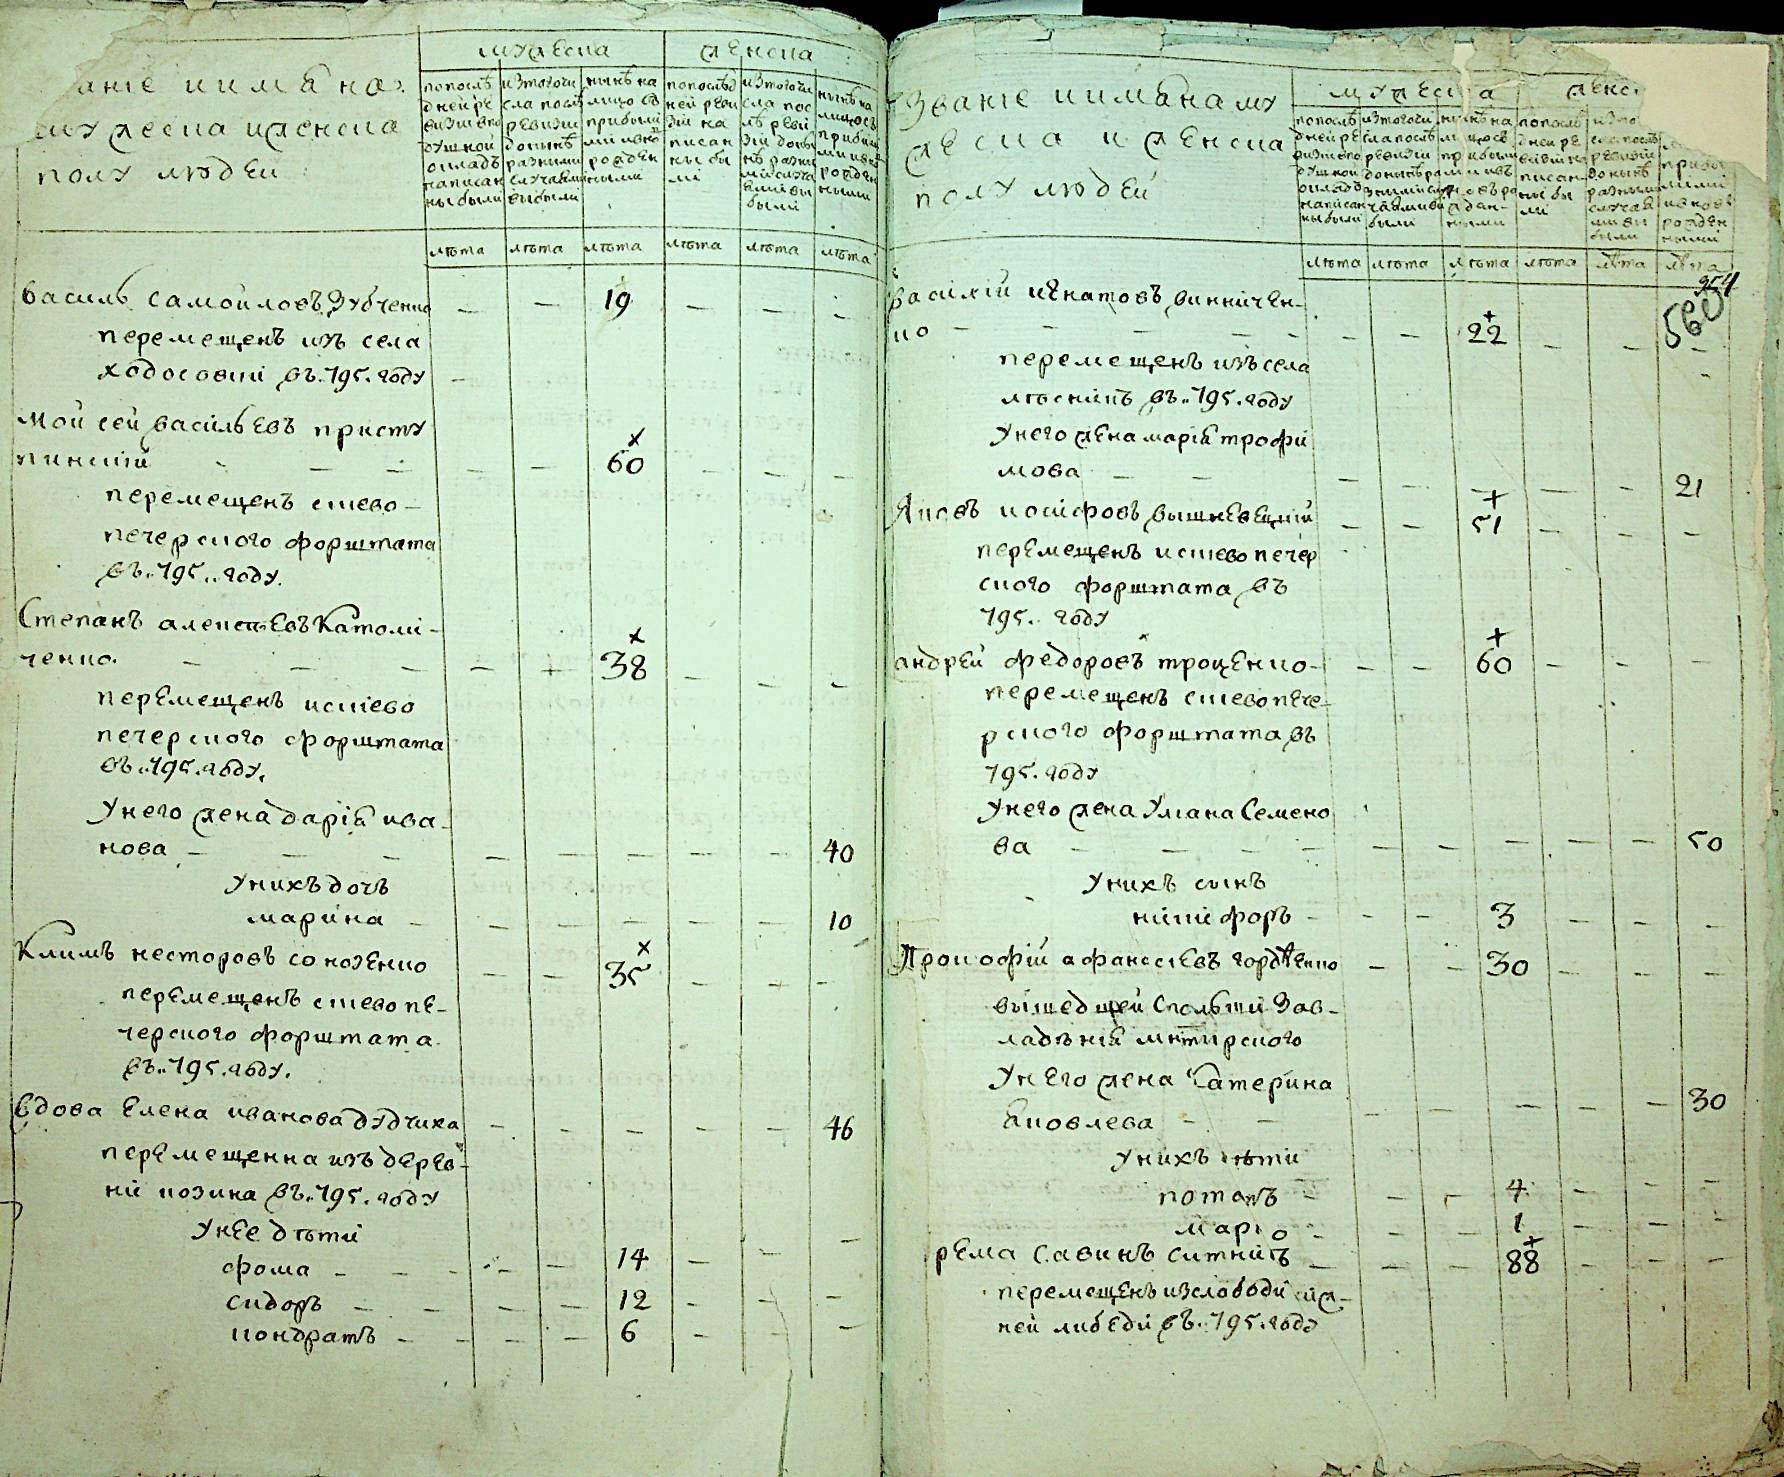 званіе и имѧна
мужеска и женска
полу людей
мужеска
женска
по послѣ
дней ре
визии в по
душной
окладъ
написан
ны были
из того чи
сла послѣ
ревизии
донынѣ
разными
случаями
выбыли
нынѣ на
лицо съ
прибылы
ми и вно
рожден
ными
по послѣд
ней реви
зіи на
писан
ны бы
лі
из того чи
сла пос
лѣ реві
зіи доны
нѣ разны
мі случа
ямі вы
былі
нынѣ на
лицо съ
прибылы
ми и вно
рожден
ными
лѣта лѣта лѣта лѣта лѣта лѣта
Василь Самойловъ Зубченко — — 19 — — —
перемещенъ изъ села
ходосовки въ 795. году
Мойсей Васильевъ присту
пинскій — — — — — 60 — — —
перемещенъ скіево
печерского форштата
въ 795. году.
Степанъ алексѣевъ Католи-
ченко. — — — — — 38 — — —
перемещенъ искіево
печерского форштата
въ 795. году.
Унего жена даріѧ ива-
нова — — — — — — — — 40
Унихъ дочъ
марина — — — — — — 10
Климъ несторовъ соножЕнко — — 35 — — —
перемещенъ скіево пе-
черского форштата
въ 795. году.
Вдова Елена иванова дудчиха — — — — — 46
перемещенна изъ дерев-
ні козина въ 795. году
Унее дѣти
фома — — — — — 14 — — —
сидоръ — — — — — 12 — — —
кондратъ — — — — 6 — — —
Званіе и имѧна му
жеска и женска
полу людей
мужеска
женс
по послѣ
дней ре
визии в по
душной
окладъ
написан
ны были
из того чи
сла послѣ
ревизіи
донынѣ ра
зными слу
чаями вы
были
нынѣ на
лицо съ
прибылы
ми и въ
новъ ро
жден-
ными
по послѣ
дней ре
визіи на
писан
ны бы
ли
из то
сла послѣ
ревизіи
донынѣ
разными
случая
ми вы
были
прибы
лыми
и вновь
рожден
ными
лѣта лѣта лѣта лѣта лѣта лѣта
354
560
Васілій игнатовъ винничЕн-
ко — — — — — — — 22 — — —
перемещенъ изъ села
лѣсникъ въ 795. году
Унего жена маріѧ трофи
мова — — — — — — — 21
Яковъ иосифовъ вышневецкій — — 51 — — —
перемещенъ искіево печер
ского форштата въ
795. году
андрей федоровъ троценко — — — 60 — — —
перемещенъ скіево пече-
рского форштата въ
795. году
Унего жена Улiана Семено
ва — — — — — — — — — 50
Унихъ сынъ
никифоръ — — — 3 — — —
Прокофій афанасіевъ гордѣенко — — 30 — — —
вышедшей Спольши Зав-
ладѣніѧ
Унего жена Катерина
ѧковлева — — — — — — — 30
Унихъ дѣти
потапъ — — — 4 — — —
марко — — — 1 — — —
рема Савинъ ситникъ — — — 88 — — —
перемещенъ изслободи ниж-
ней либеди въ 795. году